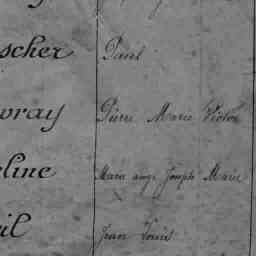 scher Paul
vray Pierre Marie Victor
line Marie ange Joseph Marie
il Jean Louis